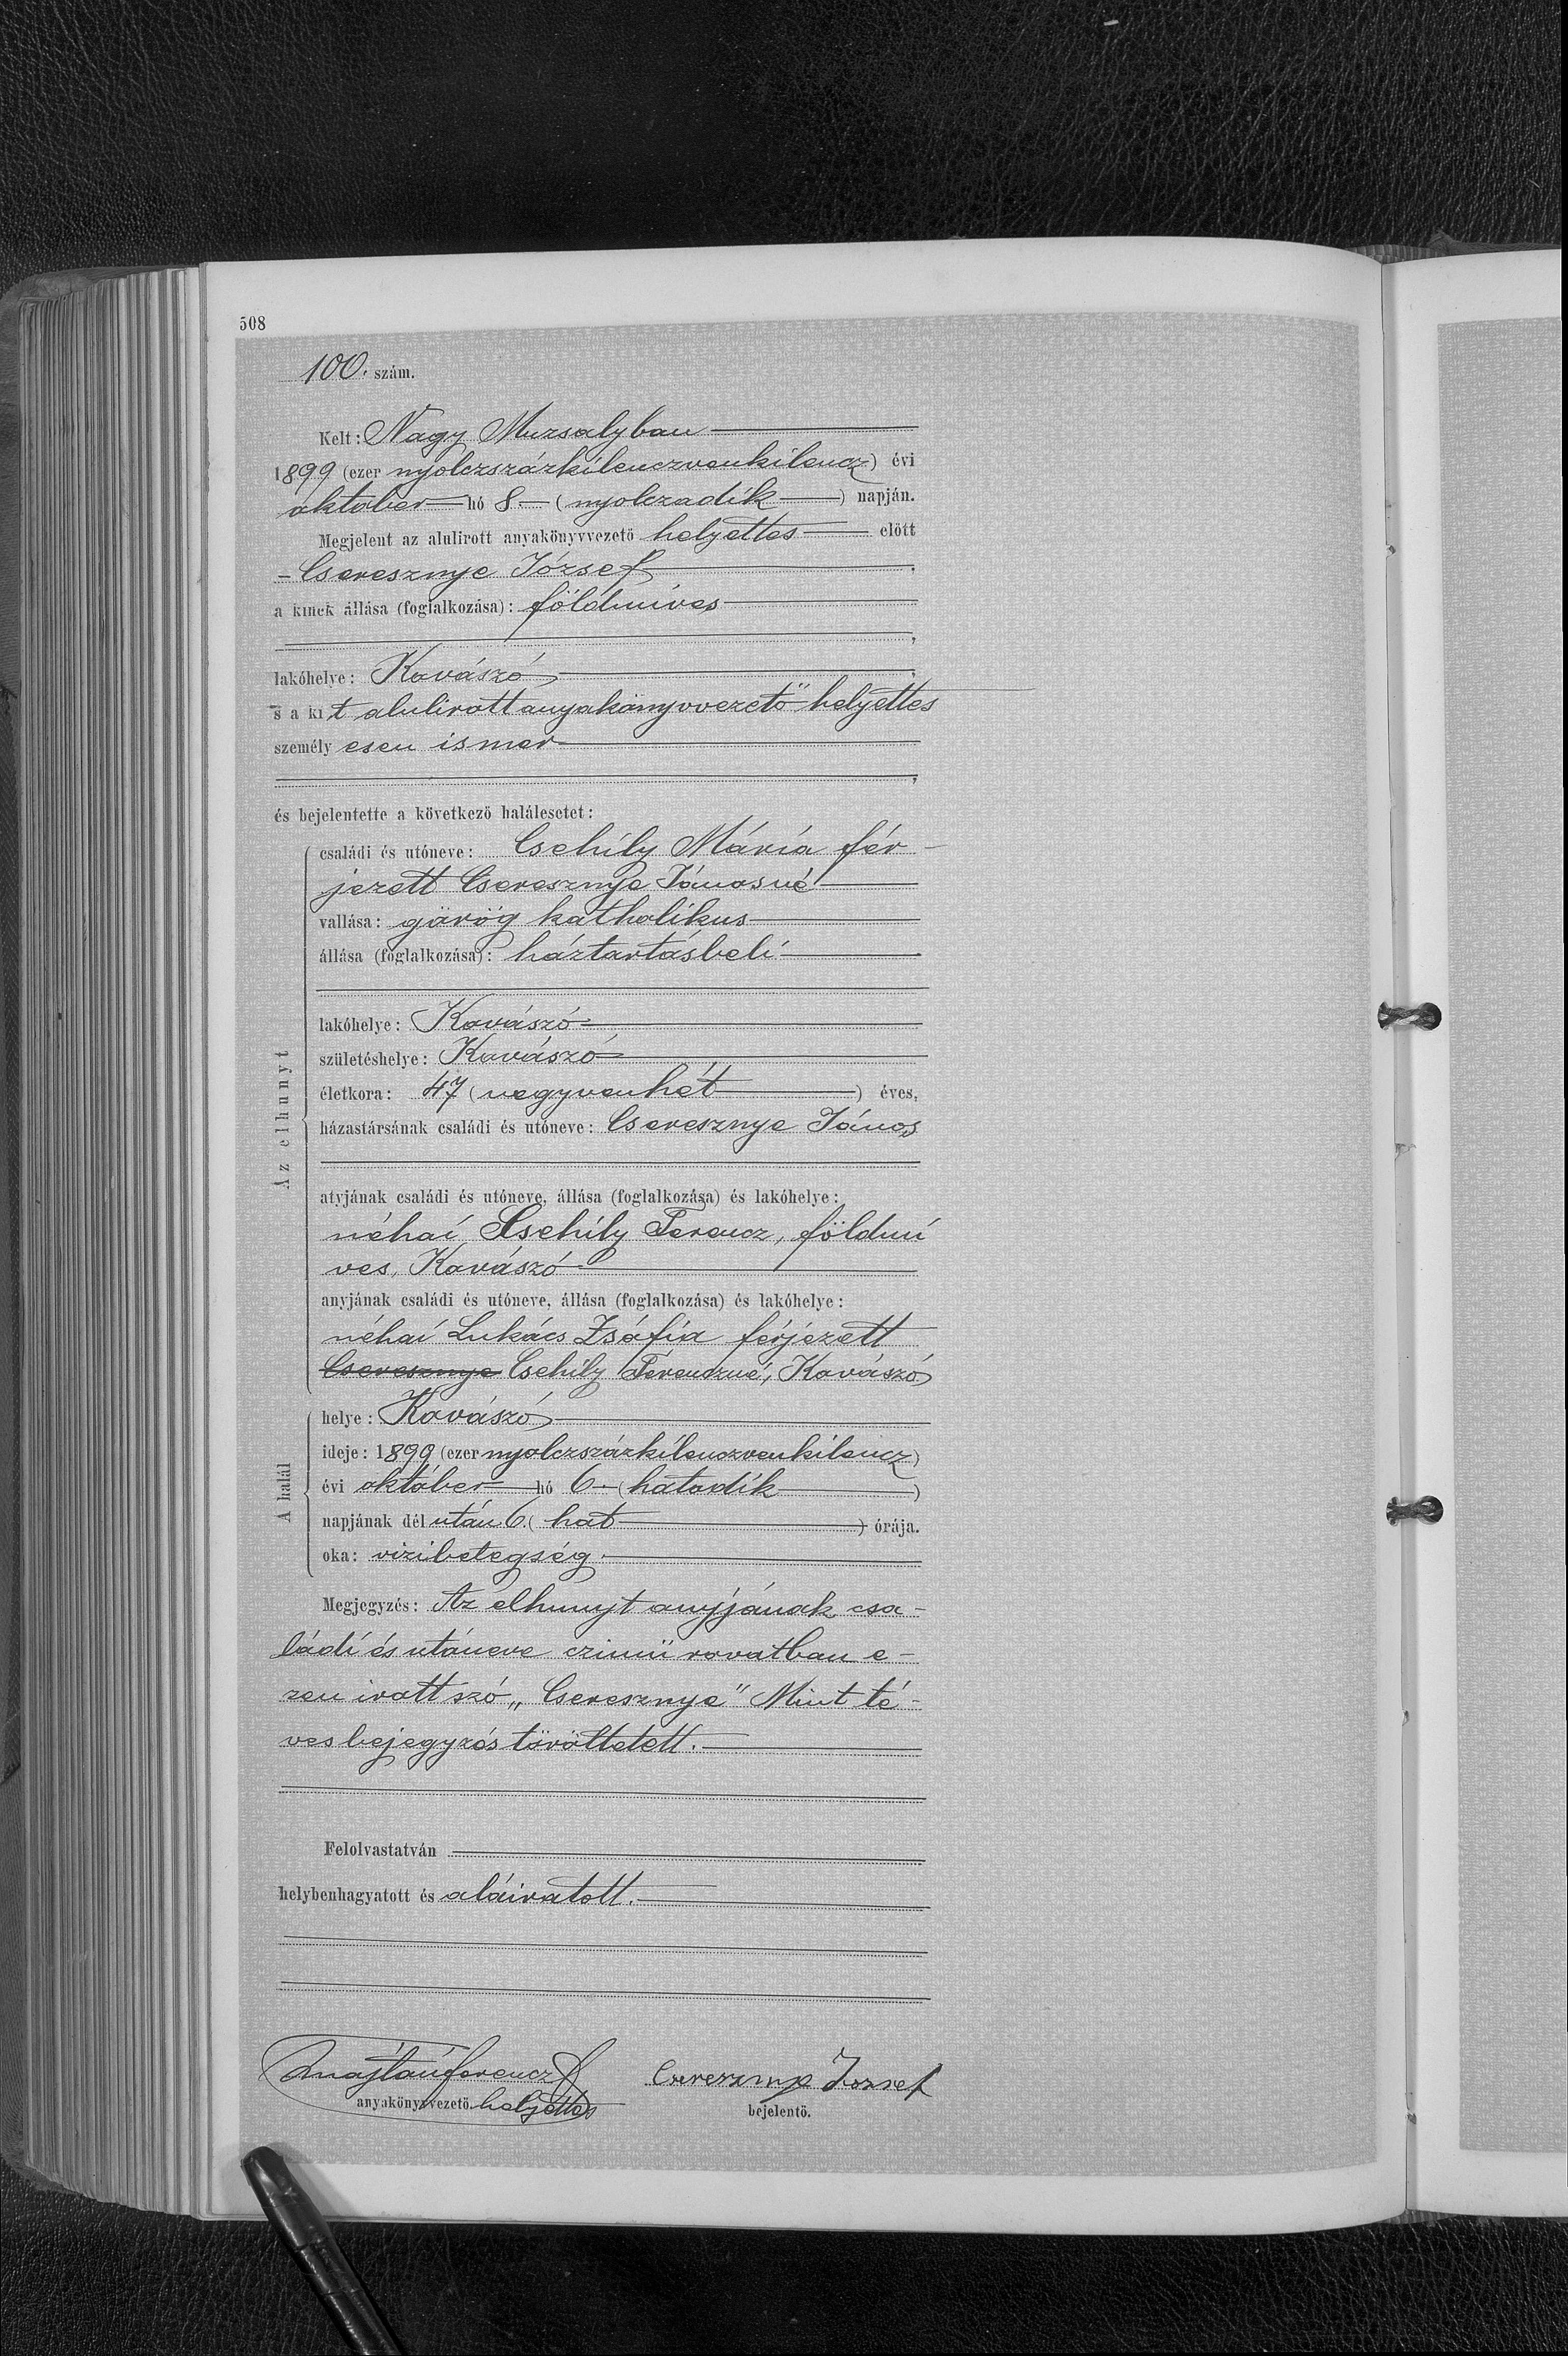 508
100. szám.
Kelt: Nagy Muzsalyban
1899 (ezer nyolczszázkilenczvenkilencz) évi
október hó 8. (nyolczadik) napján.
Megjelent az alulirott anyakönyvvezető helyettes előtt
Cseresznye József
a kinek állása (foglalkozása): földmíves
lakóhelye: Kovászó,
s a kit alulirott anyakönyvvezető helyettes
személyesen ismer
és bejelentette a következő halálesetet:
Az elhunyt
családi és utóneve: Csehily Mária fér-
jezett Cseresznye Jánosné
vallása: görög katholikus
állása (foglalkozása): háztartásbeli
lakóhelye: Kovászó
születéshelye: Kovászó
életkora: 47 (negyvenhét) éves,
házastársának családi és utóneve: Cseresznye János
atyjának családi és utóneve, állása (foglalkozása) és lakóhelye:
néhai Csehily Ferencz, földmí
ves, Kovászó
anyjának családi és utóneve, állása (foglalkozása) és lakóhelye:
néhai Lukács Zsófia férjezett
Cseresznye Csehily Ferenczné, Kovászó
A halál
helye: Kovászó
ideje: 1899 (ezer nyolczszázkilenczvenkilencz)
évi október hó 6. (hatodik)
napjának délután 6. (hat) órája.
oka: vizibetegség.
Megjegyzés: Az elhunyt anyjának csa-
ládi és utóneve czimü rovatban e-
zen irott szó „Cseresznye" Mint té-
ves bejegyzés töröltetett.
Felolvastatván
helybenhagyatott és aláiratott.
Ferencz Cseresznye József
anyakönyvvezető helyettes bejelentő.